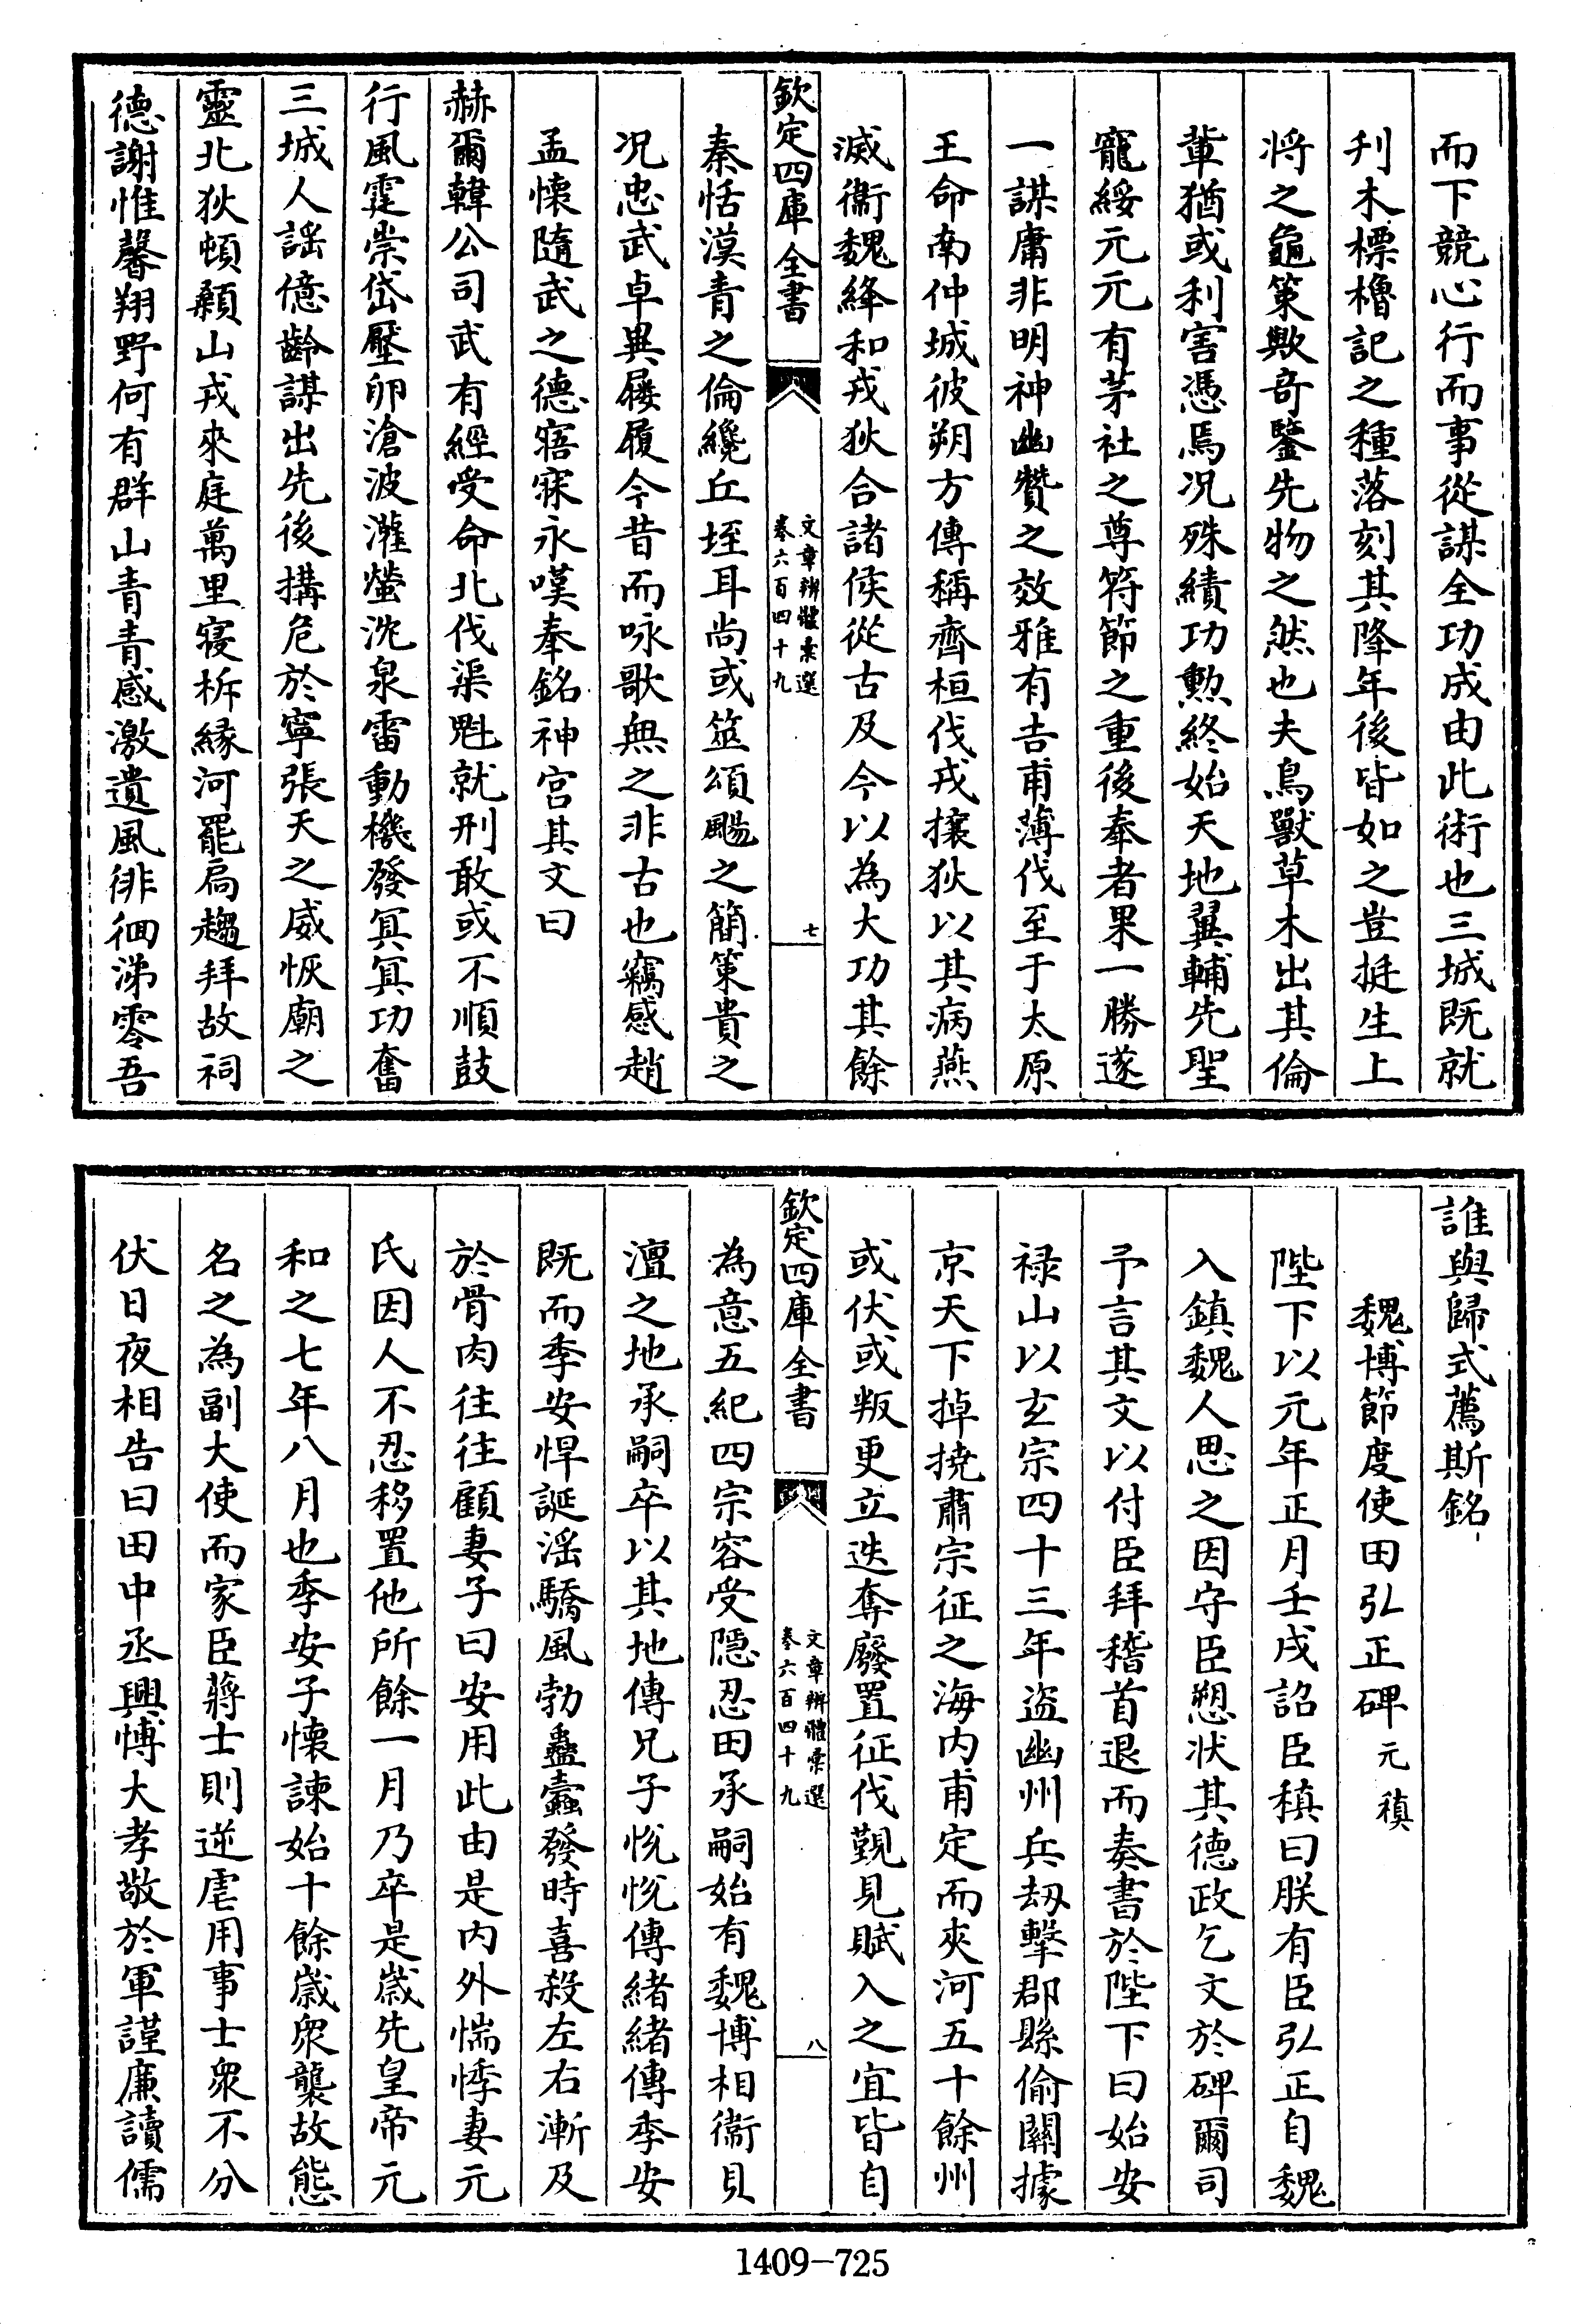 而下競心行而事從謀全功成由此術也三城既就
刋木標櫓記之種落刻其降年後皆如之豈挺生上
將之龜策歟奇鑒先物之然也夫鳥獸草木出其倫
軰猶或利害憑焉况殊績功勲終始天地翼輔先聖
寵綏元元有茅社之尊符節之重後奉者果一勝遂
一謀庸非明神幽贊之效雅有吉甫薄伐至于太原
王命南仲城彼朔方傳稱齊桓伐戎攘狄以其病燕
滅衞魏絳和戎狄合諸侯從古及今以為大功其餘
欽定四庫全書
文章辨體彚選
卷六百四十九
七
秦恬漠青之倫纔丘垤耳尚或筮頌颺之簡策貴之
况忠武卓異屨履今昔而咏歌無之非古也竊感趙
孟懐隨武之德寤寐永嘆奉銘神宫其文曰
赫爾韓公司武有經受命北伐渠魁就刑敢或不順鼓
行風霆崇岱壓卵滄波灌螢沈泉雷動機發冥冥功奮
三城人謡億齡謀出先後搆危於寧張天之威恢廟之
靈北狄頓顙山戎來庭萬里寢柝縁河罷扃趨拜故祠
德謝惟馨翔野何有群山青青感激遺風徘徊涕零吾
誰與歸式薦斯銘
魏博節度使田弘正碑 元稹
陛下以元年正月壬戌詔臣稹曰朕有臣弘正自魏
入鎮魏人思之因守臣愬状其德政乞文於碑爾司
予言其文以付臣拜稽首退而奏書於陛下曰始安
禄山以玄宗四十三年盗幽州兵刼擊郡縣偷關據
京天下掉撓肅宗征之海内甫定而夾河五十餘州
或伏或叛更立迭奪廢置征伐覲見賦入之宜皆自
欽定四庫全書
文章辨體彚選
卷六百四十九
八
為意五紀四宗容受隱忍田承嗣始有魏博相衞貝
澶之地承嗣卒以其地傳兄子恱恱傳緒緒傳季安
既而季安悍誕滛驕風勃蠱蠹發時喜殺左右漸及
於骨肉往往顧妻子曰安用此由是内外惴悸妻元
氏因人不忍移置他所餘一月乃卒是嵗先皇帝元
和之七年八月也季安子懐諫始十餘嵗衆襲故態
名之為副大使而家臣蔣士則逆虐用事士衆不分
伏日夜相告曰田中丞興博大孝敬於軍謹廉讀儒
1409-725